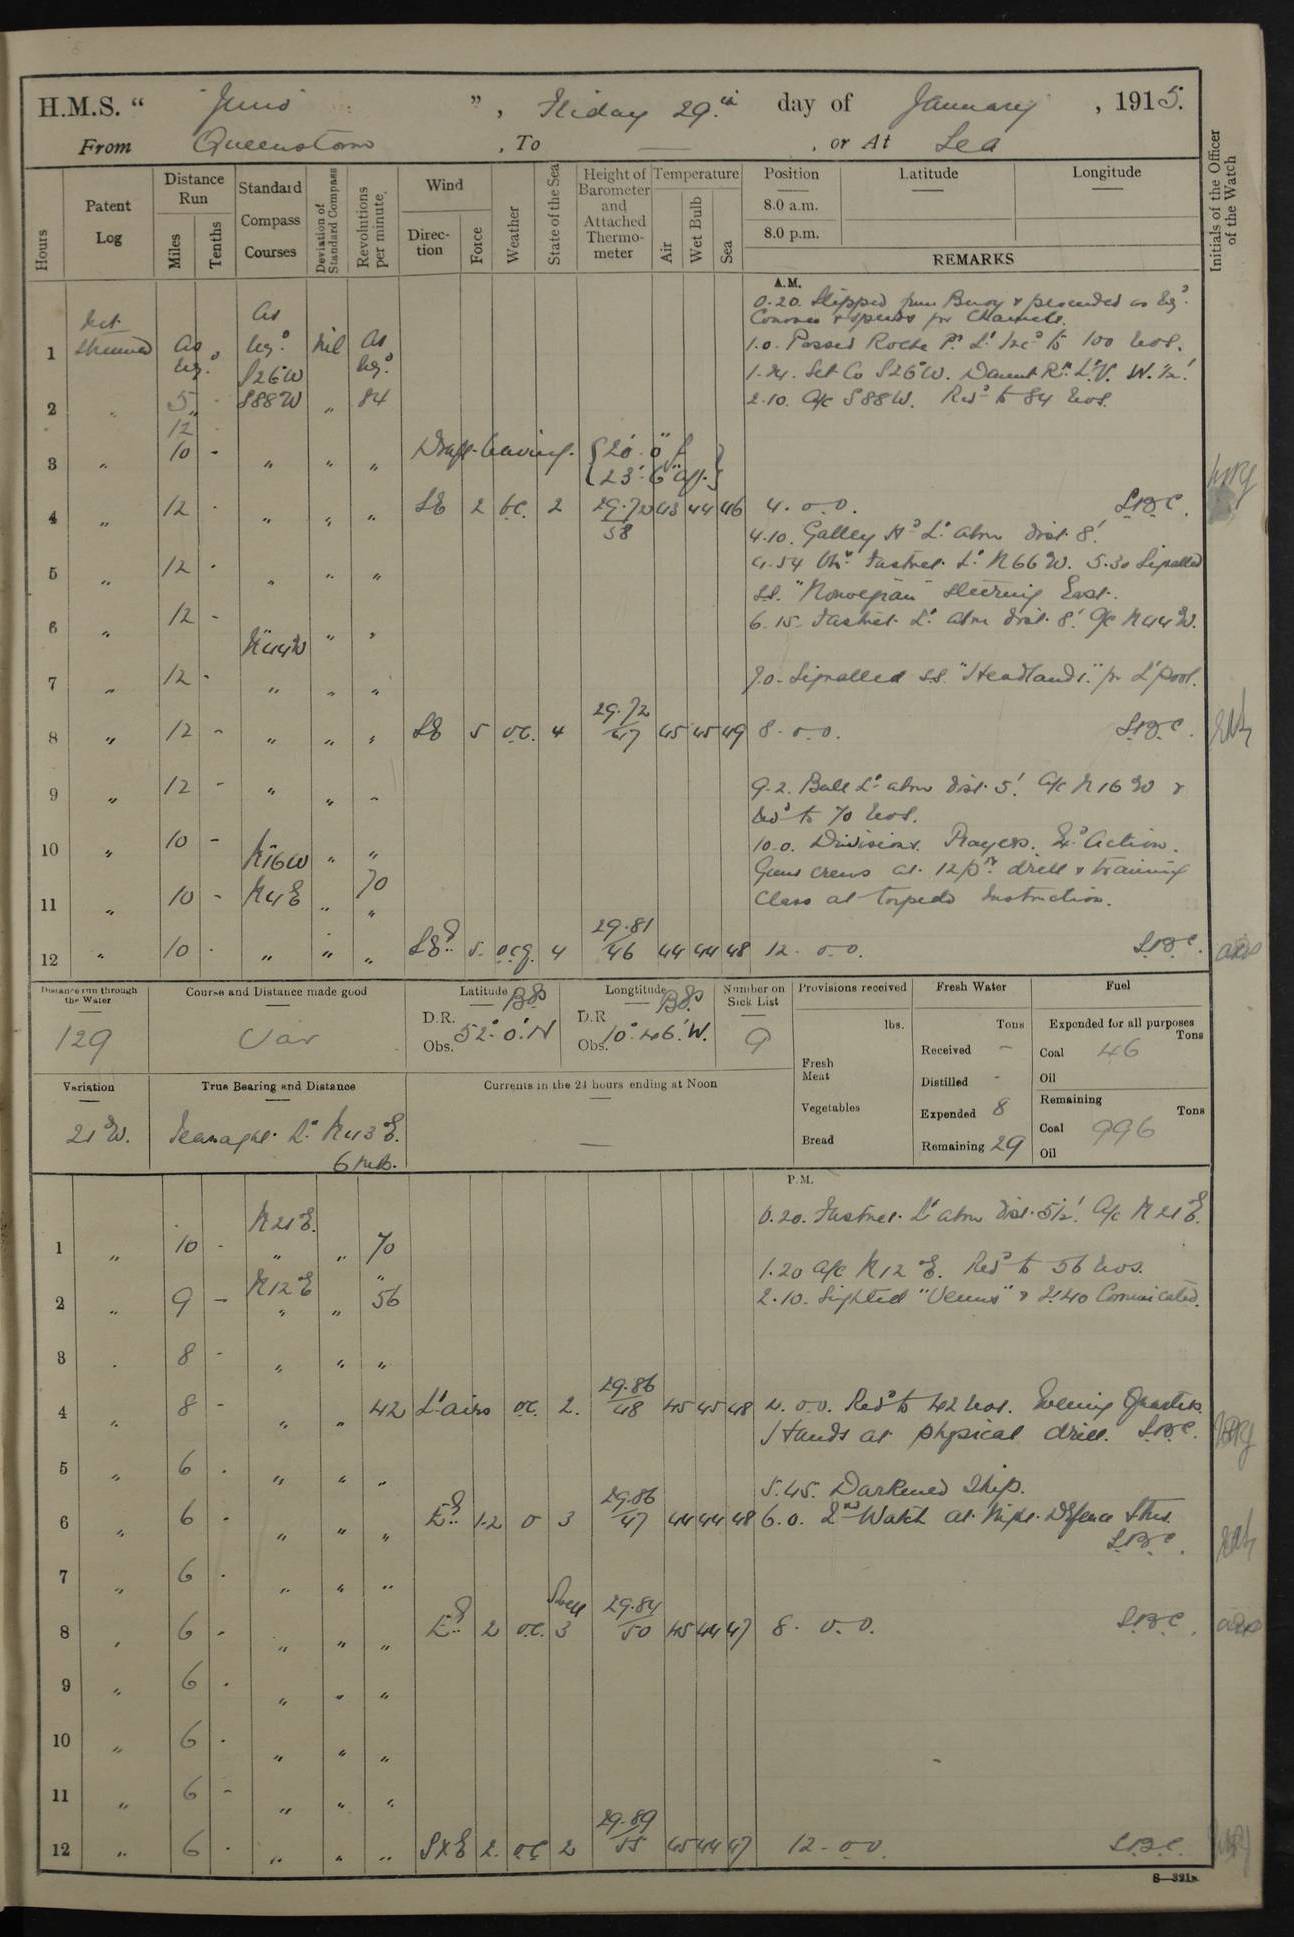 H.M.S. “ Juno ”, Friday 29th day of January, 1915.
From Queenstown, To — , or At Sea
Hours
Patent Log
Distance Run
Miles
Tenths
Standard Compass Courses
Deviation of Standard Compass
Revolutions per minute
Wind
Direction
Force
Weather
State of the Sea
Height of Barometer and Attached Thermometer
Temperature
Air
Wet Bulb
Sea
Position
8.0 a.m.
8.0 p.m.
Latitude
Longitude
REMARKS
Initials of the Officer of the Watch
A.M.
0.20. Slipped from Buoy & proceeded as reqd.
Courses & speeds for Channels.
1 Not Streamed As req. As reqd. nil As reqd. 1.0. Passed Roche Pt. Lt. Incd to 100 revs.
S26W 1.24. Set Co S26°W. Daunt Rk. L.V. W. ½'
2 " 5 - S88W " 84 2.10. A/c S88W. Redd to 84 revs.
12 -
3 " 10 - " " " Draft leaving. {20' 0" f
{23' 6" aft }
4 " 12 - " " " SE 2 bc. 2 29.72 43 44 46 4. o.o. S.B.C.
58
4.10. Galley Hd Lt. abm dist. 8'.
5 " 12 - " " " 4.54 Obs. Fastnet. Lt N66W. 5.30 Signalled
S.S. "Norwegian" steering East.
6 " 12 - N44W " " 6.15. Fastnet. Lt. abm dist. 8'. A/c N44W.
7 " 12 - " " " 7.0. Signalled S.S. "Headlands" fr L'pool.
8 " 12 - " " " SE 5 o.c. 4 29.72 45 45 49 8. o.o. S.B.C.
47
9 " 12 - " " " 9.2. Bull Lt abm dist. 5'. A/c N16W &
redd to 70 revs.
10 " 10 - N16W " " 10.0. Divisions. Prayers. Action.
70 Guns crews at 12pdr. drill & training
11 " 10 - N4E " " Class at torpedo Instruction.
12 " 10 - " " " SEd. 5. o.c.g. 4 29.81 44 44 48 12. o.o. S.B.C.
46
Distance run through the Water
129
Course and Distance made good
Var
Latitude
D.R.
Obs.
52° 0' N
Longtitude
D.R
Obs.
10° 46' W.
Number on Sick List
9
Provisions received
lbs.
Fresh Meat
Vegetables
Bread
Fresh Water
Tons
Received —
Distilled -
Expended 8
Remaining 29
Fuel
Expended for all purposes
Tons
Coal 46
Oil
Remaining
Tons
Coal 996
Oil
Variation
21°W.
True Bearing and Distance
Tearaght. Lt. N43°E.
6 mls.
Currents in the 24 hours ending at Noon
—
P.M.
N21E. 0.20. Fastnet. Lt abm dist. 5½'. A/c N21E.
1 " 10 - " " 70
1.20 A/c N12°E. Redd to 56 revs.
2 " 9 - N12E " 56 2.10. Sighted "Venus" & 2.40 Communicated.
3 . 8 - " " "
4 " 8 - " " 42 Lt airs o.c. 2. 29.86 45 45 48 4. o.o. Redd to 42 revs. Evening Quarters.
48
Hands at physical drill. S.B.C.
5 " 6 . " " "
5.45. Darkened Ship.
6 " 6 - " " " Ed. 1-2 o 3 29.86 44 44 48 6.0. 2nd Watch at Night Defence Stns.
47 S.B.C.
7 " 6 . " " "
8 " 6 - " " " Ed. 2 o.c. Swell 3 29.84 45 44 47 8. o.o. S.B.C.
50
9 " 6 . " " "
10 " 6 . " " "
11 " 6 - " " "
12 " 6 . " " " SxE 2. o.c 2 29.89 45 44 47 12. o.o. S.B.C.
55